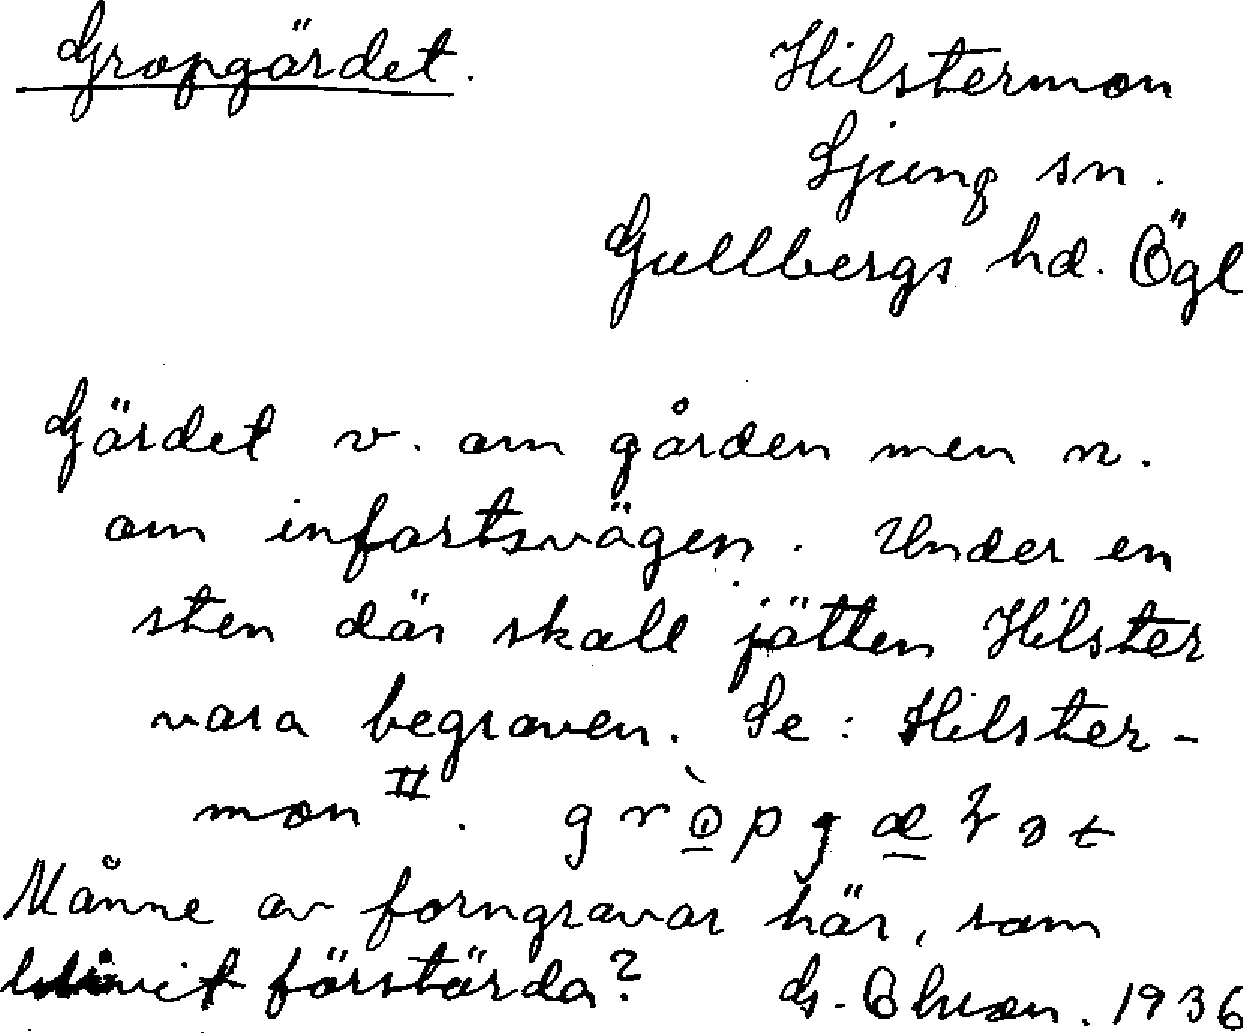 Gropgärdet.
Hilstermon
Ljung sn.
Gullbergs hd. Ögl
Gärdet v. om gården men n.
om infartsvägen. Under en
sten där skall jätten Hilster
vara begraven. Se: Hilster-
mon II.
Månne av forngravar här, som
blivit förstörda? G.
1936